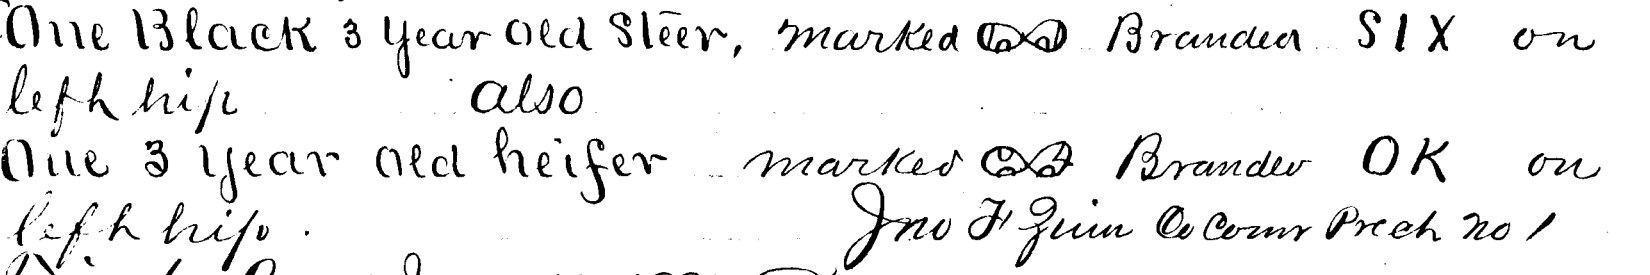 One Black 3 year old Steer, marked Branded SIX on
left hip also
One 3 year old heifer marked Branded OK on
left hip.
Jno F Zinn Co Comr Prect No 1